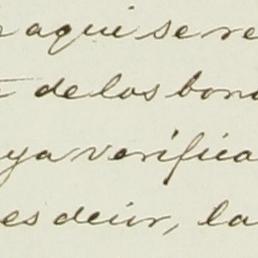 aqui se re
de los bono
ya verifica
es decir, la